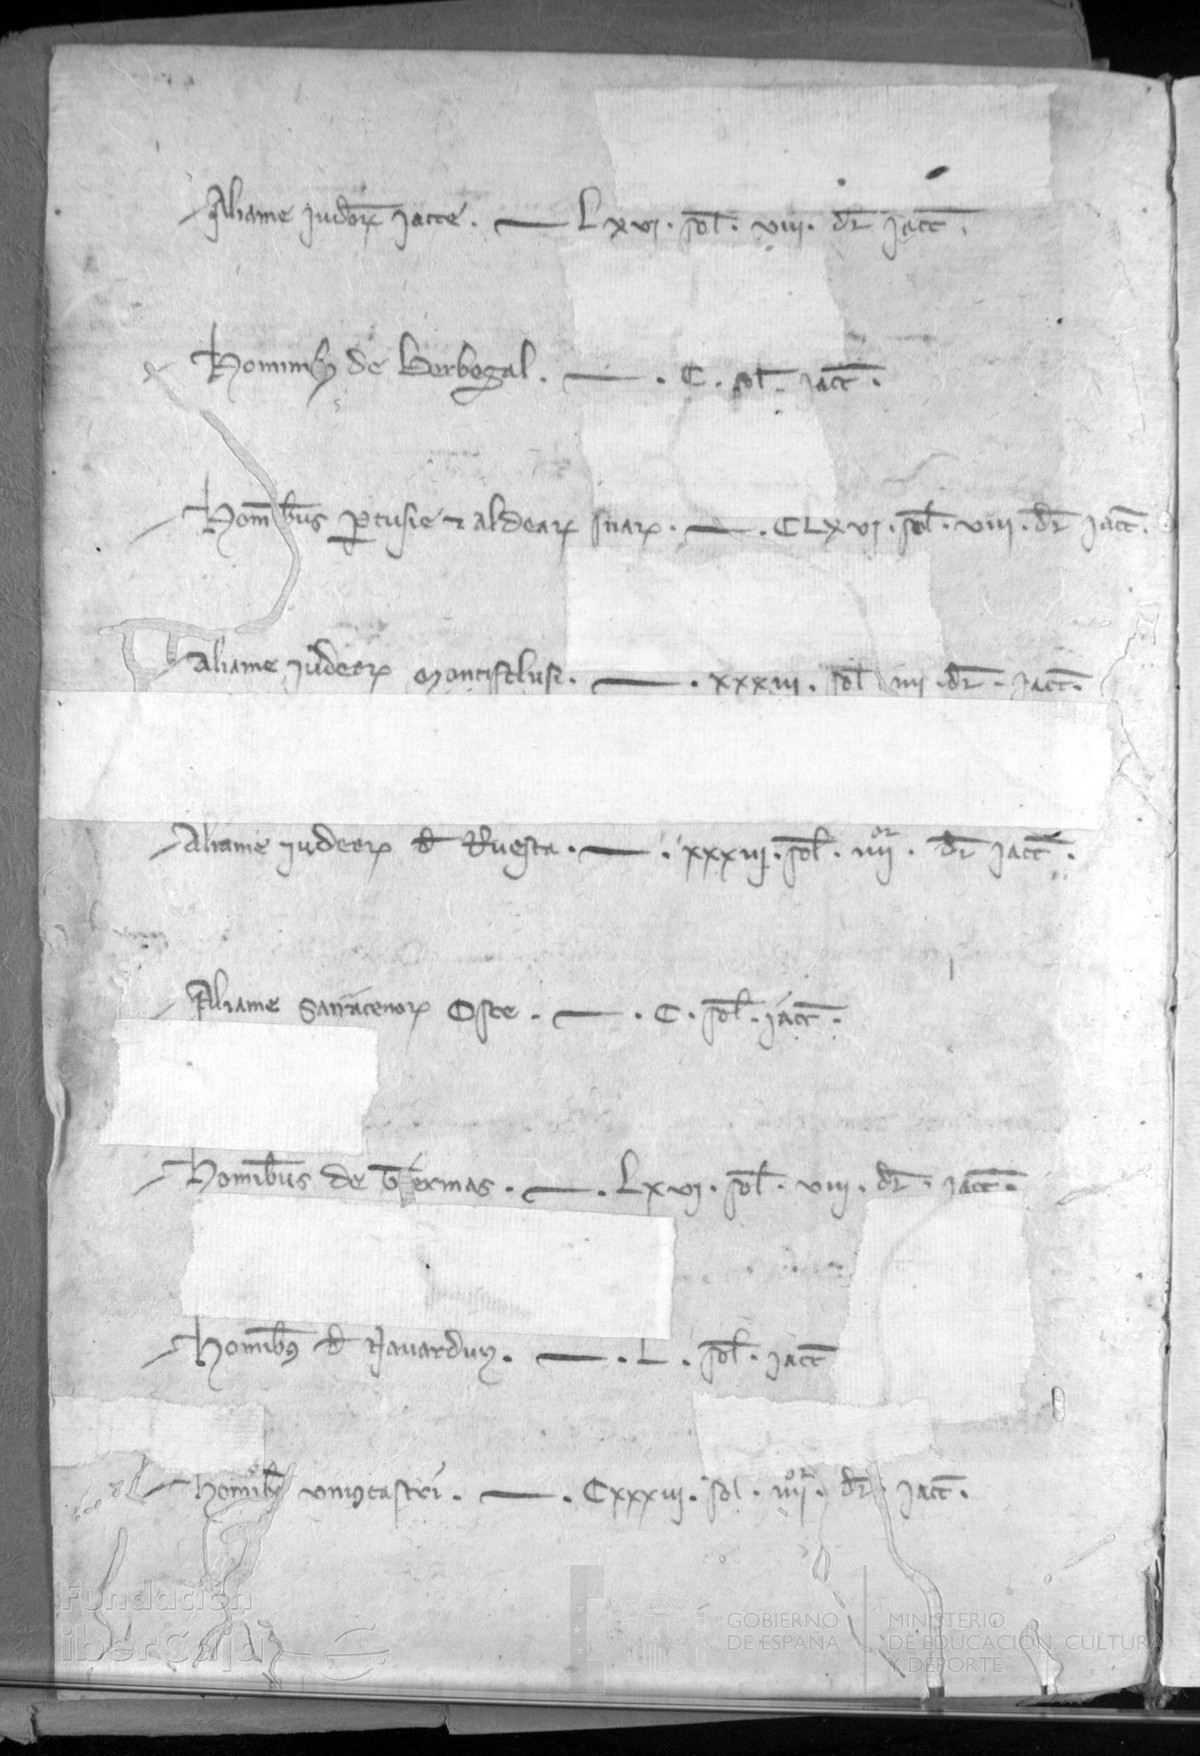 Aliame judeorꝝ jacce. — Lxvj. sol̅. viii. dr̅ jacc̅.
Hominibꝫ de Berbegal. — . C. sol̅. jacc̅.
Hom̅ib̅us ꝑtusie ⁊ aldearꝝ suarꝝ. — . CLxvj. sol̅. viii. dr̅ jacc̅.
Aliame judeorꝝ montisclusi. — . xxxiii. sol̅ iiij. dr̅. jacc̅.
Aliame judeorꝝ d̅ Ruesta. — . xxxiij. sol̅. iiijor. dr̅ jacc̅.
Aliame Sarracenorꝝ Osce. — . C. sol̅. jacc̅.
Homib̅us de Thermas. — . Lxvj. sol̅. viij. dr̅. jacc̅.
Homib̅ꝫ d̅ Navardun. — . L. sol̅. jacc̅
homib̅ꝫ uniꝯcastri. — . Cxxxiij. sol. iiijor. dr̅. jacc̅.
Fundación
iberCaja
GOBIERNO
DE ESPAÑA
MINISTERIO
DE EDUCACIÓN, CULTURA
Y DEPORTE